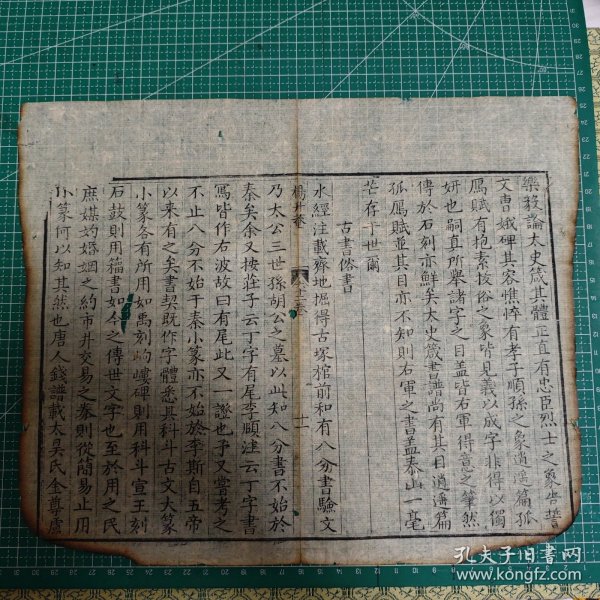 樂毅論太史箴其體正直有忠臣烈士之象告誓
文曹娥碑其容憔悴有孝子順孫之象逍遙篇孤
鴈賦有抱素拔俗之象皆見義以成字非得以獨
妍也嗣真所舉諸字之目盖皆右軍得意之筆然
傳於石刻亦鮮矣太史箴書譜尚有其目逍遙篇
孤鴈賦並其目亦不知則右軍之書盖泰山一毫
芒存于世爾
古書俗書
水經注載齊地掘得古塚棺前和有八分書驗文
楊升菴
乃太公三世孫胡公之墓以此知八分書不始於
秦矣余又按莊子云丁字有尾李頤注云丁字書
寫皆作右波故曰有尾此又一證也予又嘗考之
不止八分不始于秦小篆亦不始於李斯自五帝
以來有之矣書契既作字體悉具科斗古文大篆
小篆各有所用如禹刻岣嶁碑則用科斗宣王刻
石鼓則用籀書如今之傳世文字也至於用之民
庶媒妁婚姻之約市井交易之券則從簡易止用
小篆何以知其然也唐人錢譜載太昊氏金尊盧
孔夫子旧书网
www.kongfz.com